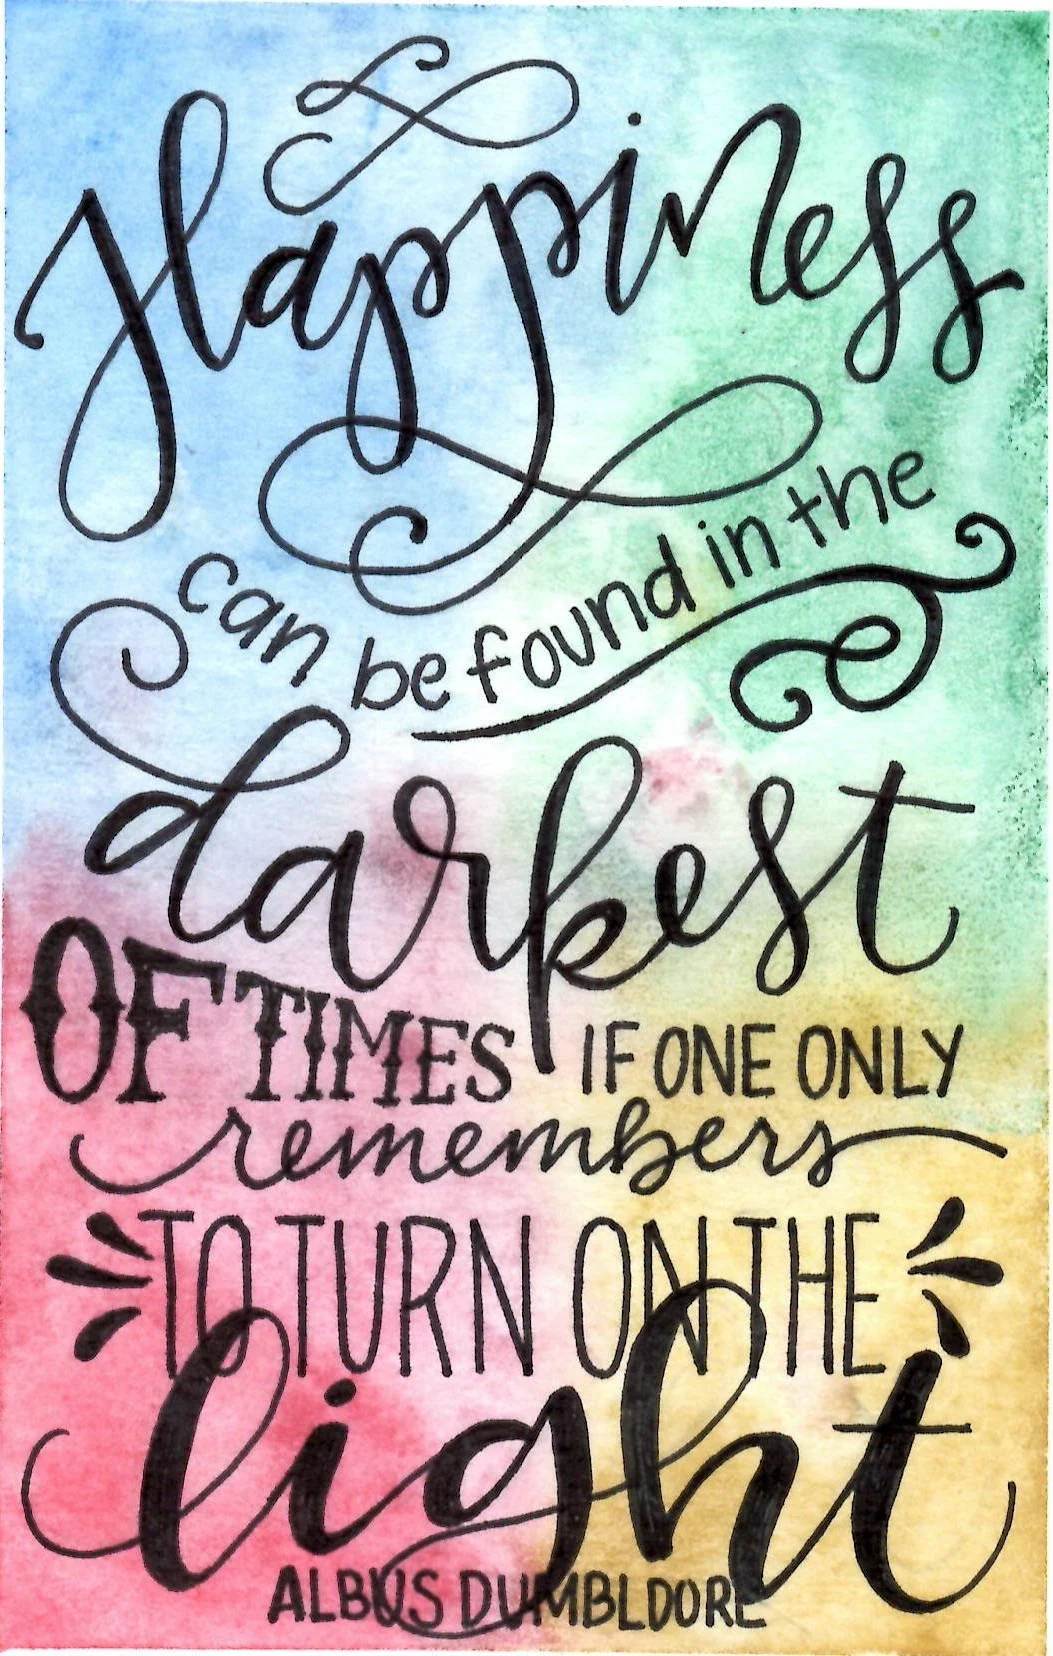 Happiness
can be found in the
darkest
OF TIMES IF ONE ONLY
remembers
TO TURN ON THE
light
ALBUS DUMBLDORE